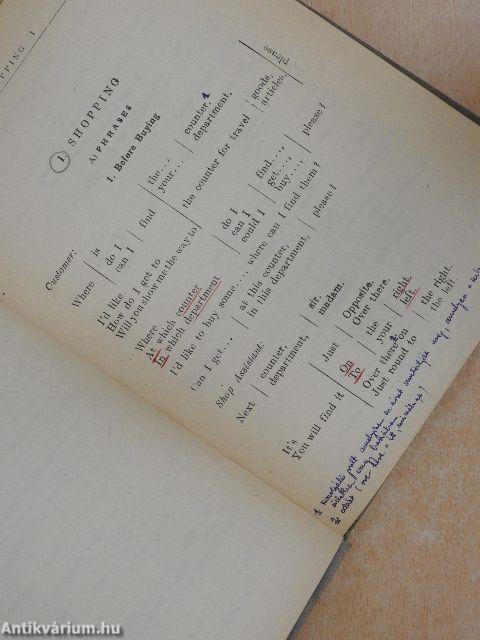 PPING 1
1. SHOPPING
A) PHRASES
1. Before Buying
Customer:
Where
is
do I find
can I
the....
your....
counter, 1
department,
please
I'd like
How do I get to
Will you show me the way to
the counter for travel
goods,
articles,
Where
At which counter
In which department
do I
can I
could I
find....,
get....,
buy....,
please?
I'd like to buy some.... where can I find them?
Can I get....
at this counter,
in this department,
please?
Shop Assistant:
Next
counter,
department,
sir.
madam.
It's
You will find it
Opposite.
Over there.
Just
On
To
the
your
right.
left.
Over there 2 on
Just round to
the right.
the left.
Antikvárium.hu